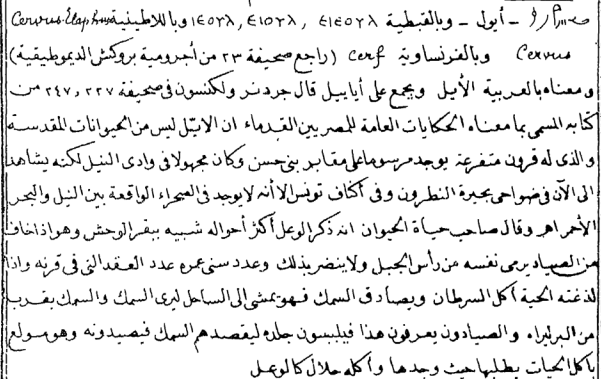 أيول - وبالقبطية ⲉⲓⲉⲟⲩⲗ , ⲉⲓⲟⲩⲗ , ⲓⲉⲟⲩⲗ وباللاطينية Cervus Elaphus
Cervus وبالفرنساوية cerf (راجع صحيفة ٢٣ من أجرومية بروكش الديموطيقية)
ومعناه بالعربية الأيل ويجمع على أياييل قال جردنر ولكنسون فى صحيفة ٢٢٧ , ٢٤٧ من
كتابه المسمى بما معناه الحكايات العامة للمصريين القدماء ان الايّل ليس من الحيوانات المقدسة
والذى له قرون متفرعة يوجد مرسوما على مقابر بنى حسن وكان مجهولا فى وادى النيل لكنه يشاهد
الى الآن فى ضواحى بحيرة النطرون وفى أكاف تونس الا أنه لا يوجد فى الصحراء الواقعة بين النيل والبحر
الأحمر اهـ وقال صاحب حياة الحيوان انه ذكر الوعل أكثر أحواله شبيه ببقر الوحش وهو اذا خاف
من الصياد يرمى نفسه من رأس الجبل ولا ينضر بذلك وعدد سنى عمره عدد العقد التى فى قرنه واذا
لدغته الحية أكل السرطان ويصادق السمك فهو يمشى الى الساحل ليرى السمك والسمك يقرب
من البر ليراه والصيادون يعرفون هذا فيلبسون جلده ليقصدهم السمك فيصيدونه وهو مولع
بأكل الحيات يطلبها حيث وجدها وأكله حلال كالوعل